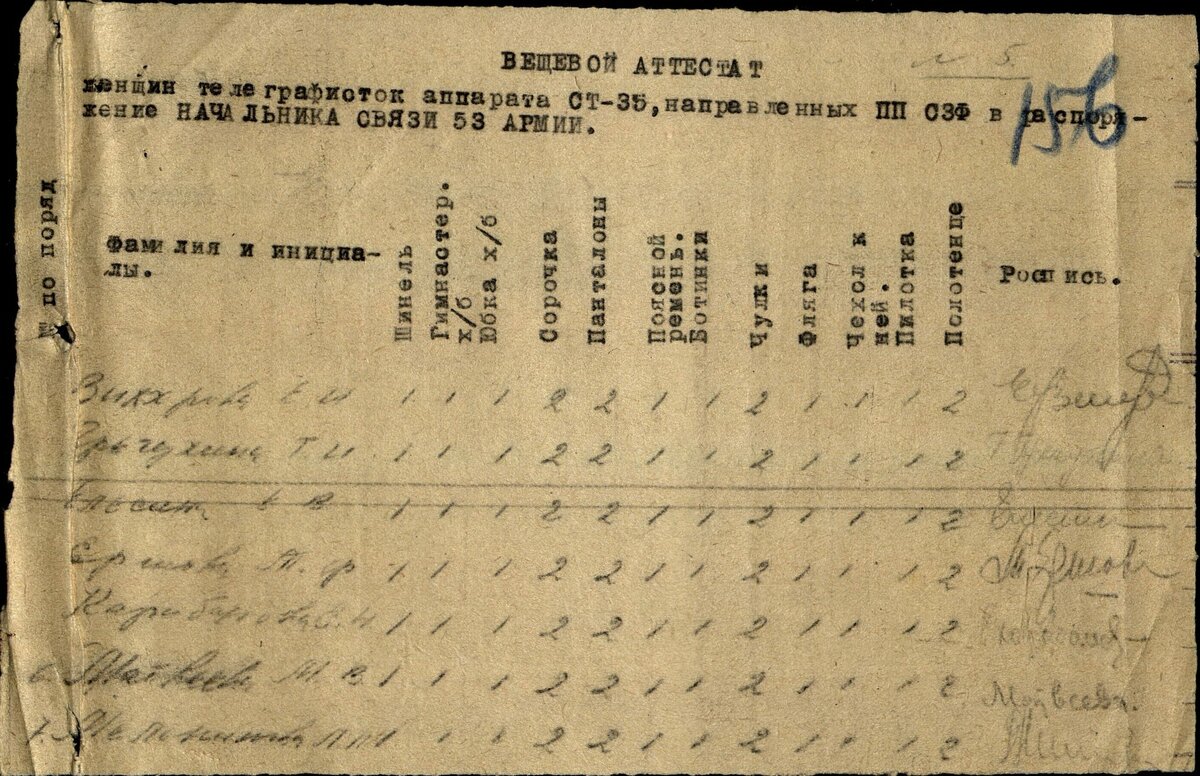 № 5
ВЕЩЕВОЙ АТТЕСТАТ
женщин телеграфисток аппарата СТ-35, направленных ПП СЗФ в распоря-
жение НАЧАЛЬНИКА СВЯЗИ 53 АРМИИ.
156
№ по поряд
Фамилия и инициа-
лы.
Шинель
Гимнастер.
х/б
Юбка х/б
Сорочка
Панталоны
Поясной
ремень.
Ботинки
Чулки
Фляга
Чехол к
ней.
Пилотка
Полотенце
Роспись.
Е И 1 1 1 2 2 1 1 2 1 1 1 2
Т И 1 1 1 2 2 1 1 2 1 1 1 2
Е В 1 1 1 2 2 1 1 2 1 1 1 2
Ершова М. Ф 1 1 1 2 2 1 1 2 1 1 1 2 М. Ершова
1 1 1 2 2 1 1 2 1 1 1 2
6. Матвеева М В 1 1 1 2 2 1 1 2 1 1 1 2 Матвеева
7. 1 1 1 2 2 1 1 2 1 1 1 2